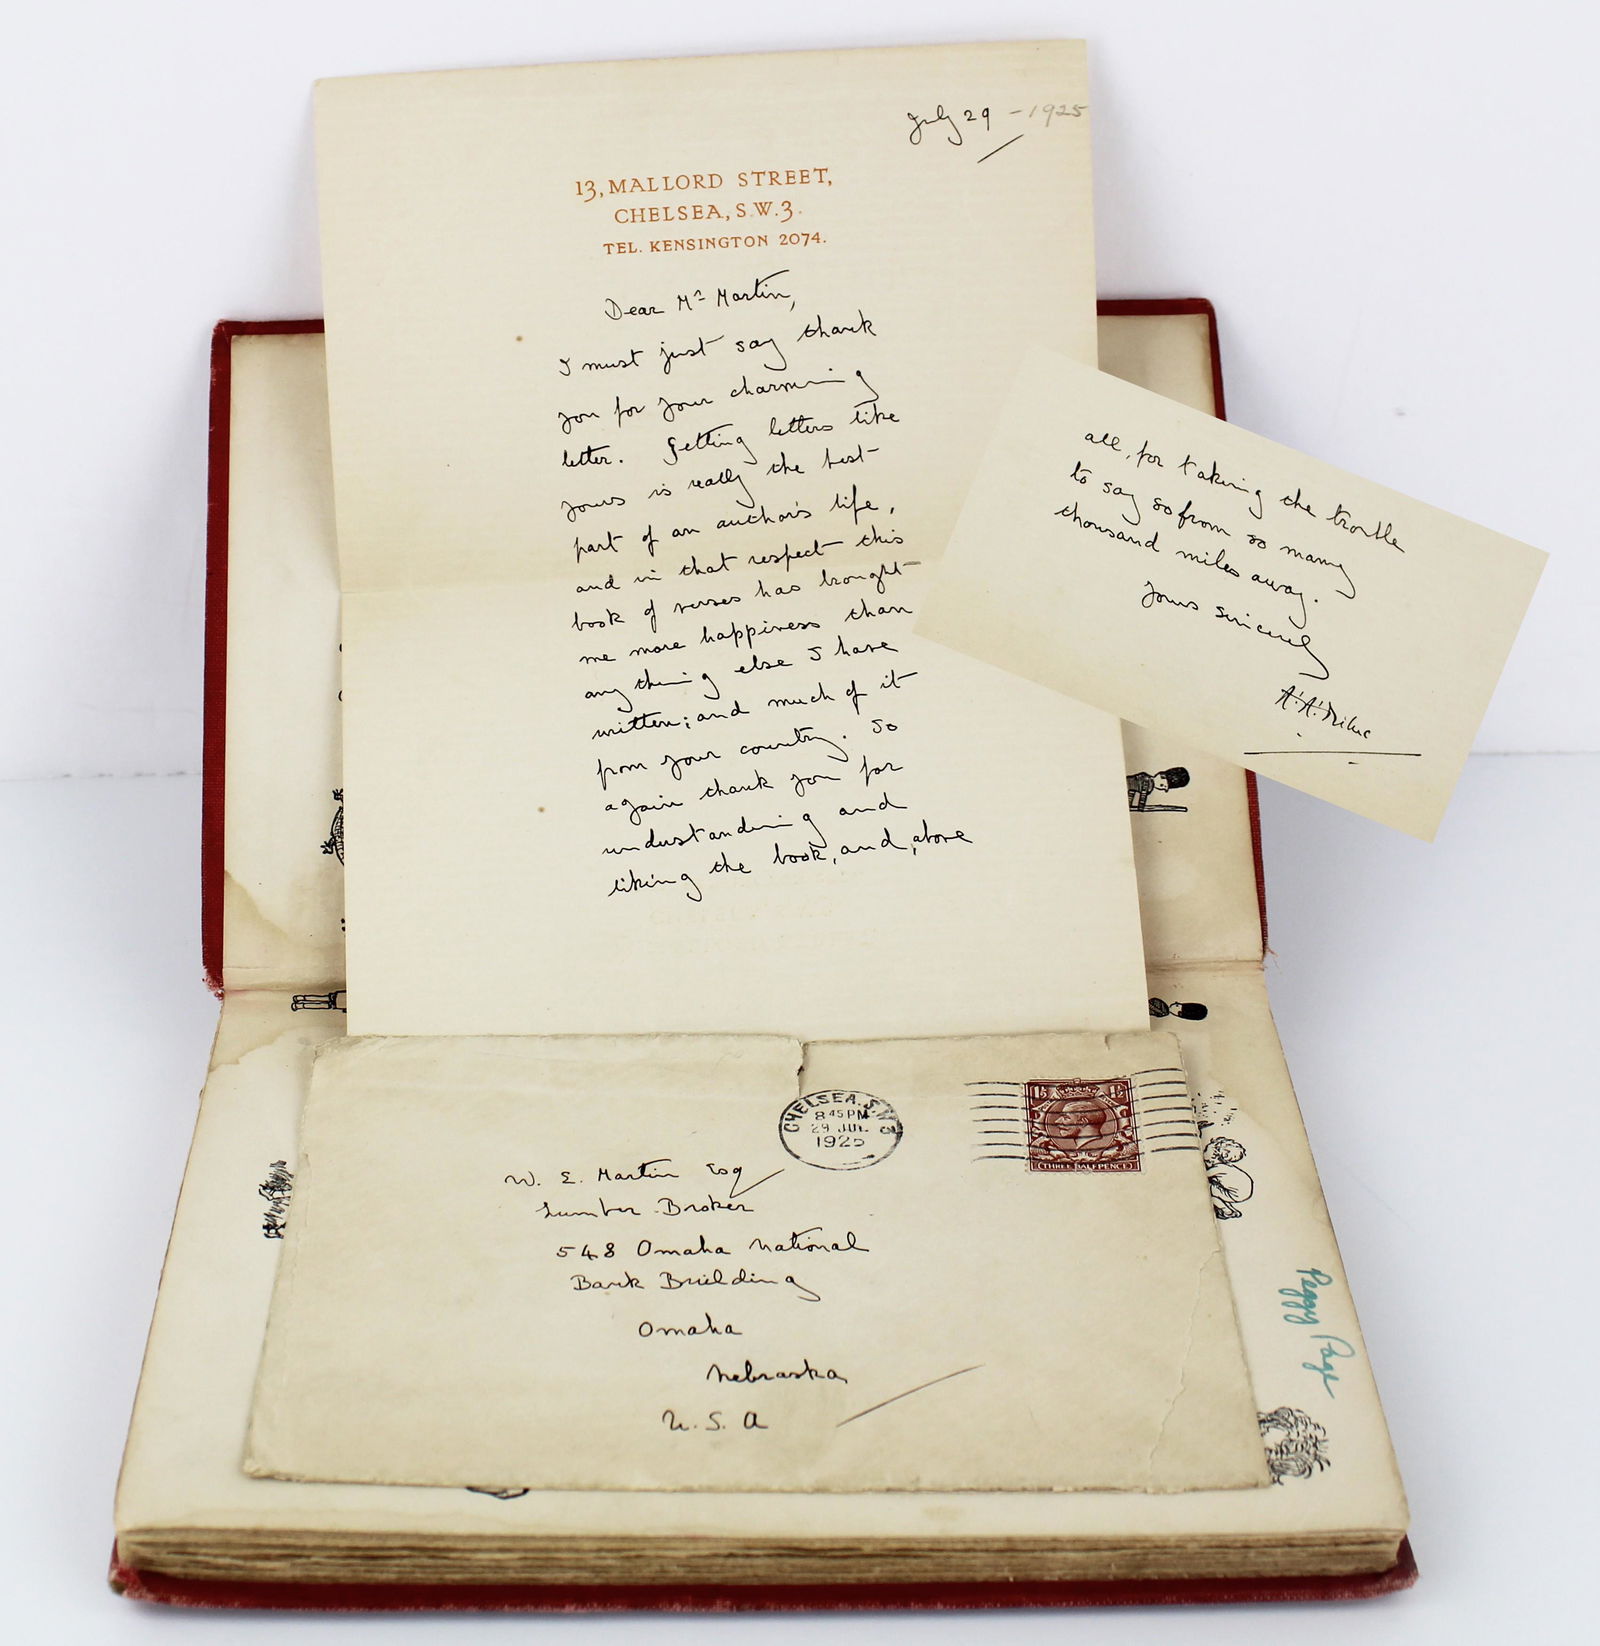 July 29 - 1925
13, MALLORD STREET,
CHELSEA, S.W.3.
TEL. KENSINGTON 2074.
Dear Mr Martin,
I must just say thank
you for your charming
letter. Getting letters like
yours is really the best
part of an author's life,
and in that respect this
book of verses has brought
me more happiness than
anything else I have
written; and much of it
from your country. So
again thank you for
understanding and
liking the book, and, above
all, for taking the trouble
to say so from so many
thousand miles away.
Yours sincerely
A. A. Milne
CHELSEA. S.W.3
8 45 PM
29 JUL
1925
1½ 1½
THREE HALFPENCE
W. E. Martin Esq
Lumber Broker
548 Omaha National
Bank Building
Omaha
Nebraska
U. S. A
Peggy Page